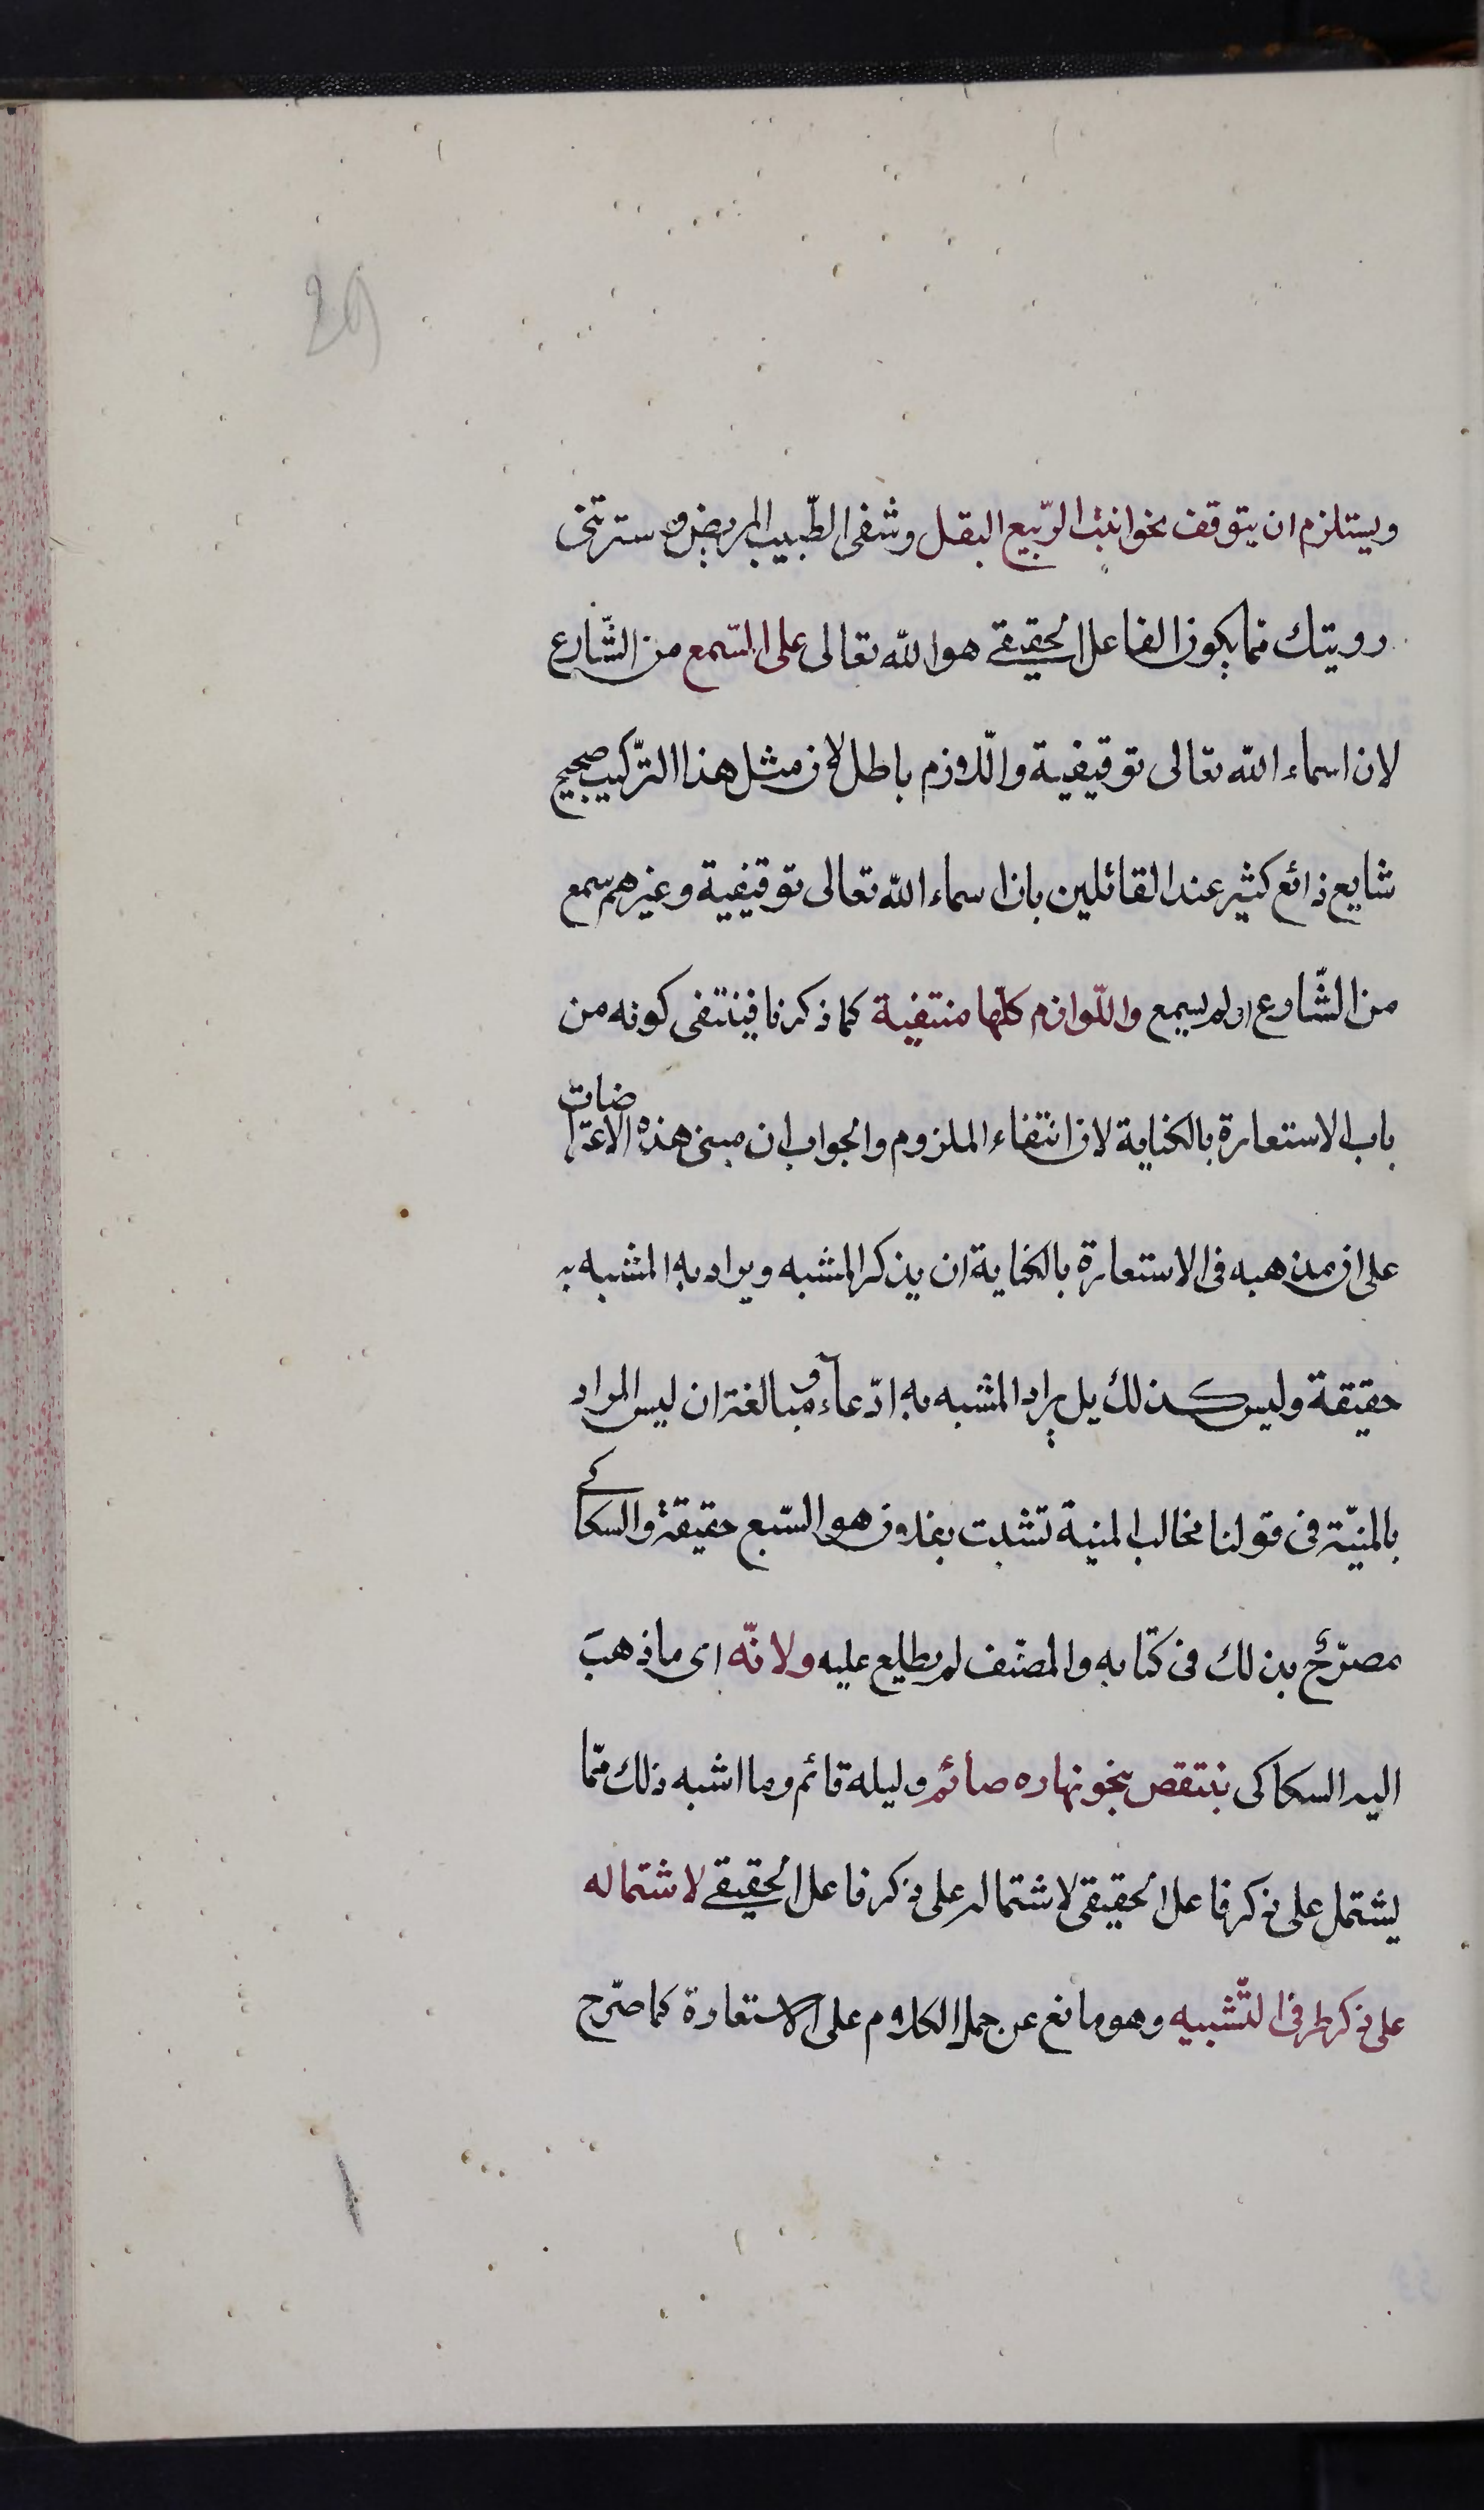 29
ويستلزم ان يتوقف نحو انبت الرّبيع البقل وشفى الطّبيب المريض وسترتنى
رويتك مما يكون الفاعل الحقيقے هو الله تعالى على السّمع من الشّارع
لان اسماء الله تعالى توقيفية والّلازم باطل لان مثل هذا التّركيب صحيح
شايع ذائع كثير عند القائلين بان اسماء الله تعالى توقيفية وغيرهم سمع
من الشّارع او لم يسمع واللّوازم كلّها منتفية كما ذكرنا فينتفى كونه من
باب الاستعارة بالكناية لان انتفاء الملزوم والجواب ان مبنى هذه الاعتراضات
على ان مذهبه فى الاستعارة بالكناية ان يذكر المشبه ويراد به المشبه به
حقيقة وليس كذلك بل يراد المشبه به ادّعاء ومبالغة ان ليس المراد
بالمنيّة فى قولنا مخالب المنية نشبت بفلان هو السّبع حقيقة والسكاكے
مصرّح بذلك فى كتابه والمصنّف لم يطلع عليه ولانّه اى ما ذهبَ
اليه السكاكى ينتقص بنحو نهاره صائم وليله قائم وما اشبه ذلك ممّا
يشتمل على ذكر فاعل الحقيقى لاشتماله على ذكر فاعل الحقيقے لاشتماله
على ذكر طرفى التّشبيه وهو مانع عن حمل الكلام على الاستعارة كما صرّح